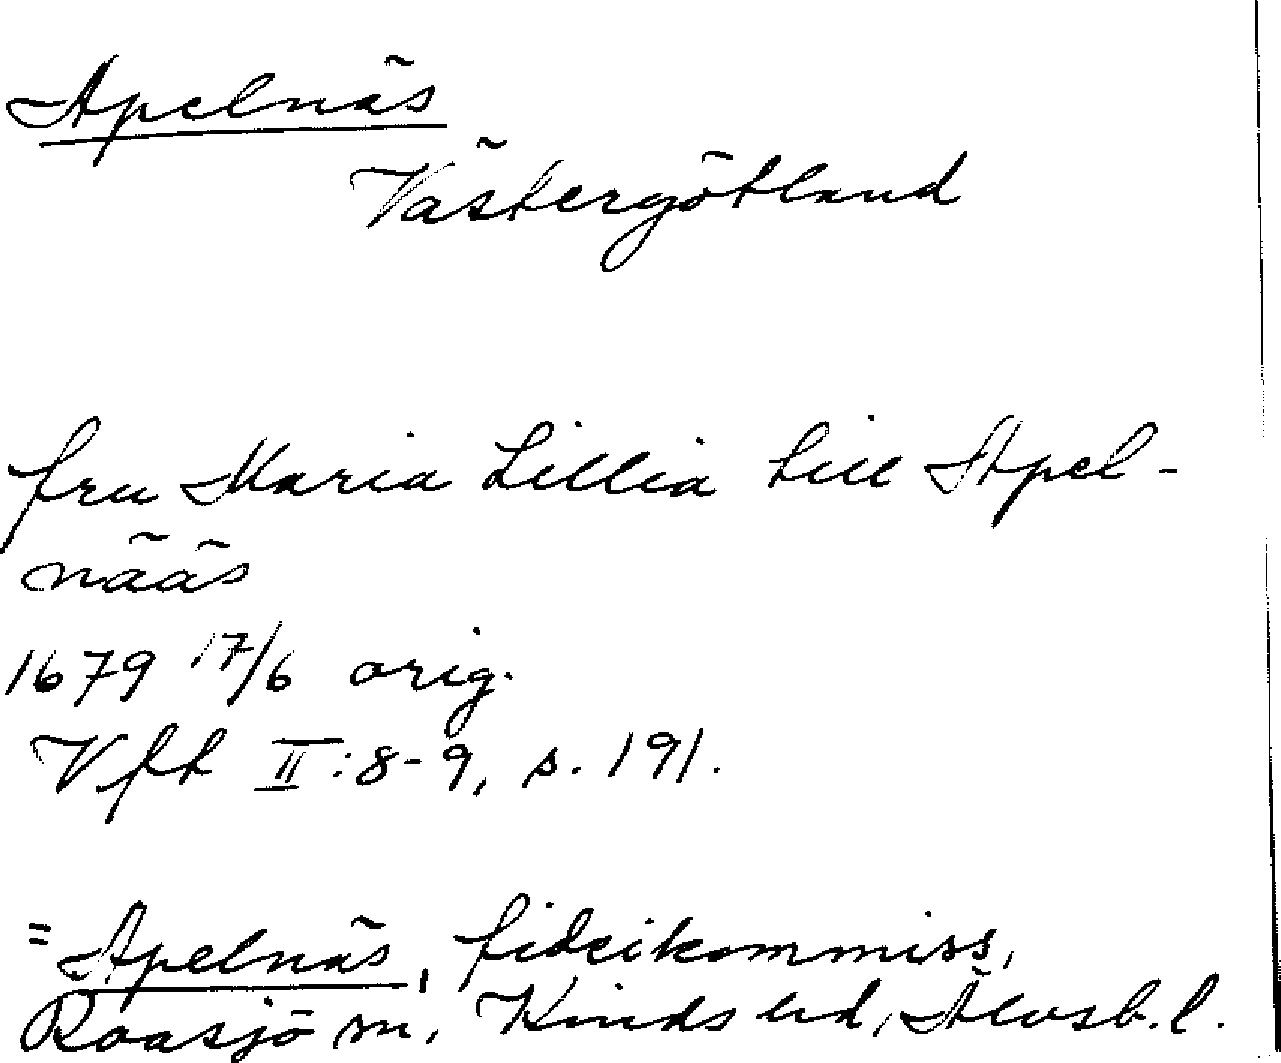 Apelnäs
Västergötland
fru Maria Lillia till Apel-
nääs
1679 17/6 orig.
Vfft II:8-9, s. 191.
= Apelnäs, fideikommiss,
Roasjö sn, Kinds hd, Älvsb. l.